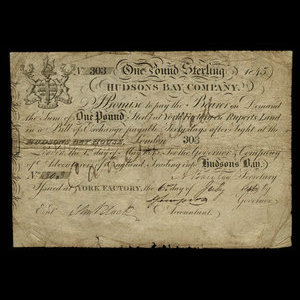 No. 303 One Pound Sterling 1845
HUDSONS BAY COMPANY.
Promise to pay the Bearer on Demand
the Sum of One Pound Sterg at York Factory in Ruperts Land
in a Bill of Exchange payable Sixty days after Sight at the
HUDSONS BAY HOUSE, London 303
the 1st day of May For the Governor & Company
of Adventurers of England, trading into Hudsons Bay.
No. 303 Secretary
Issued at YORK FACTORY, the day of July
Governor
Entd. Accountant.